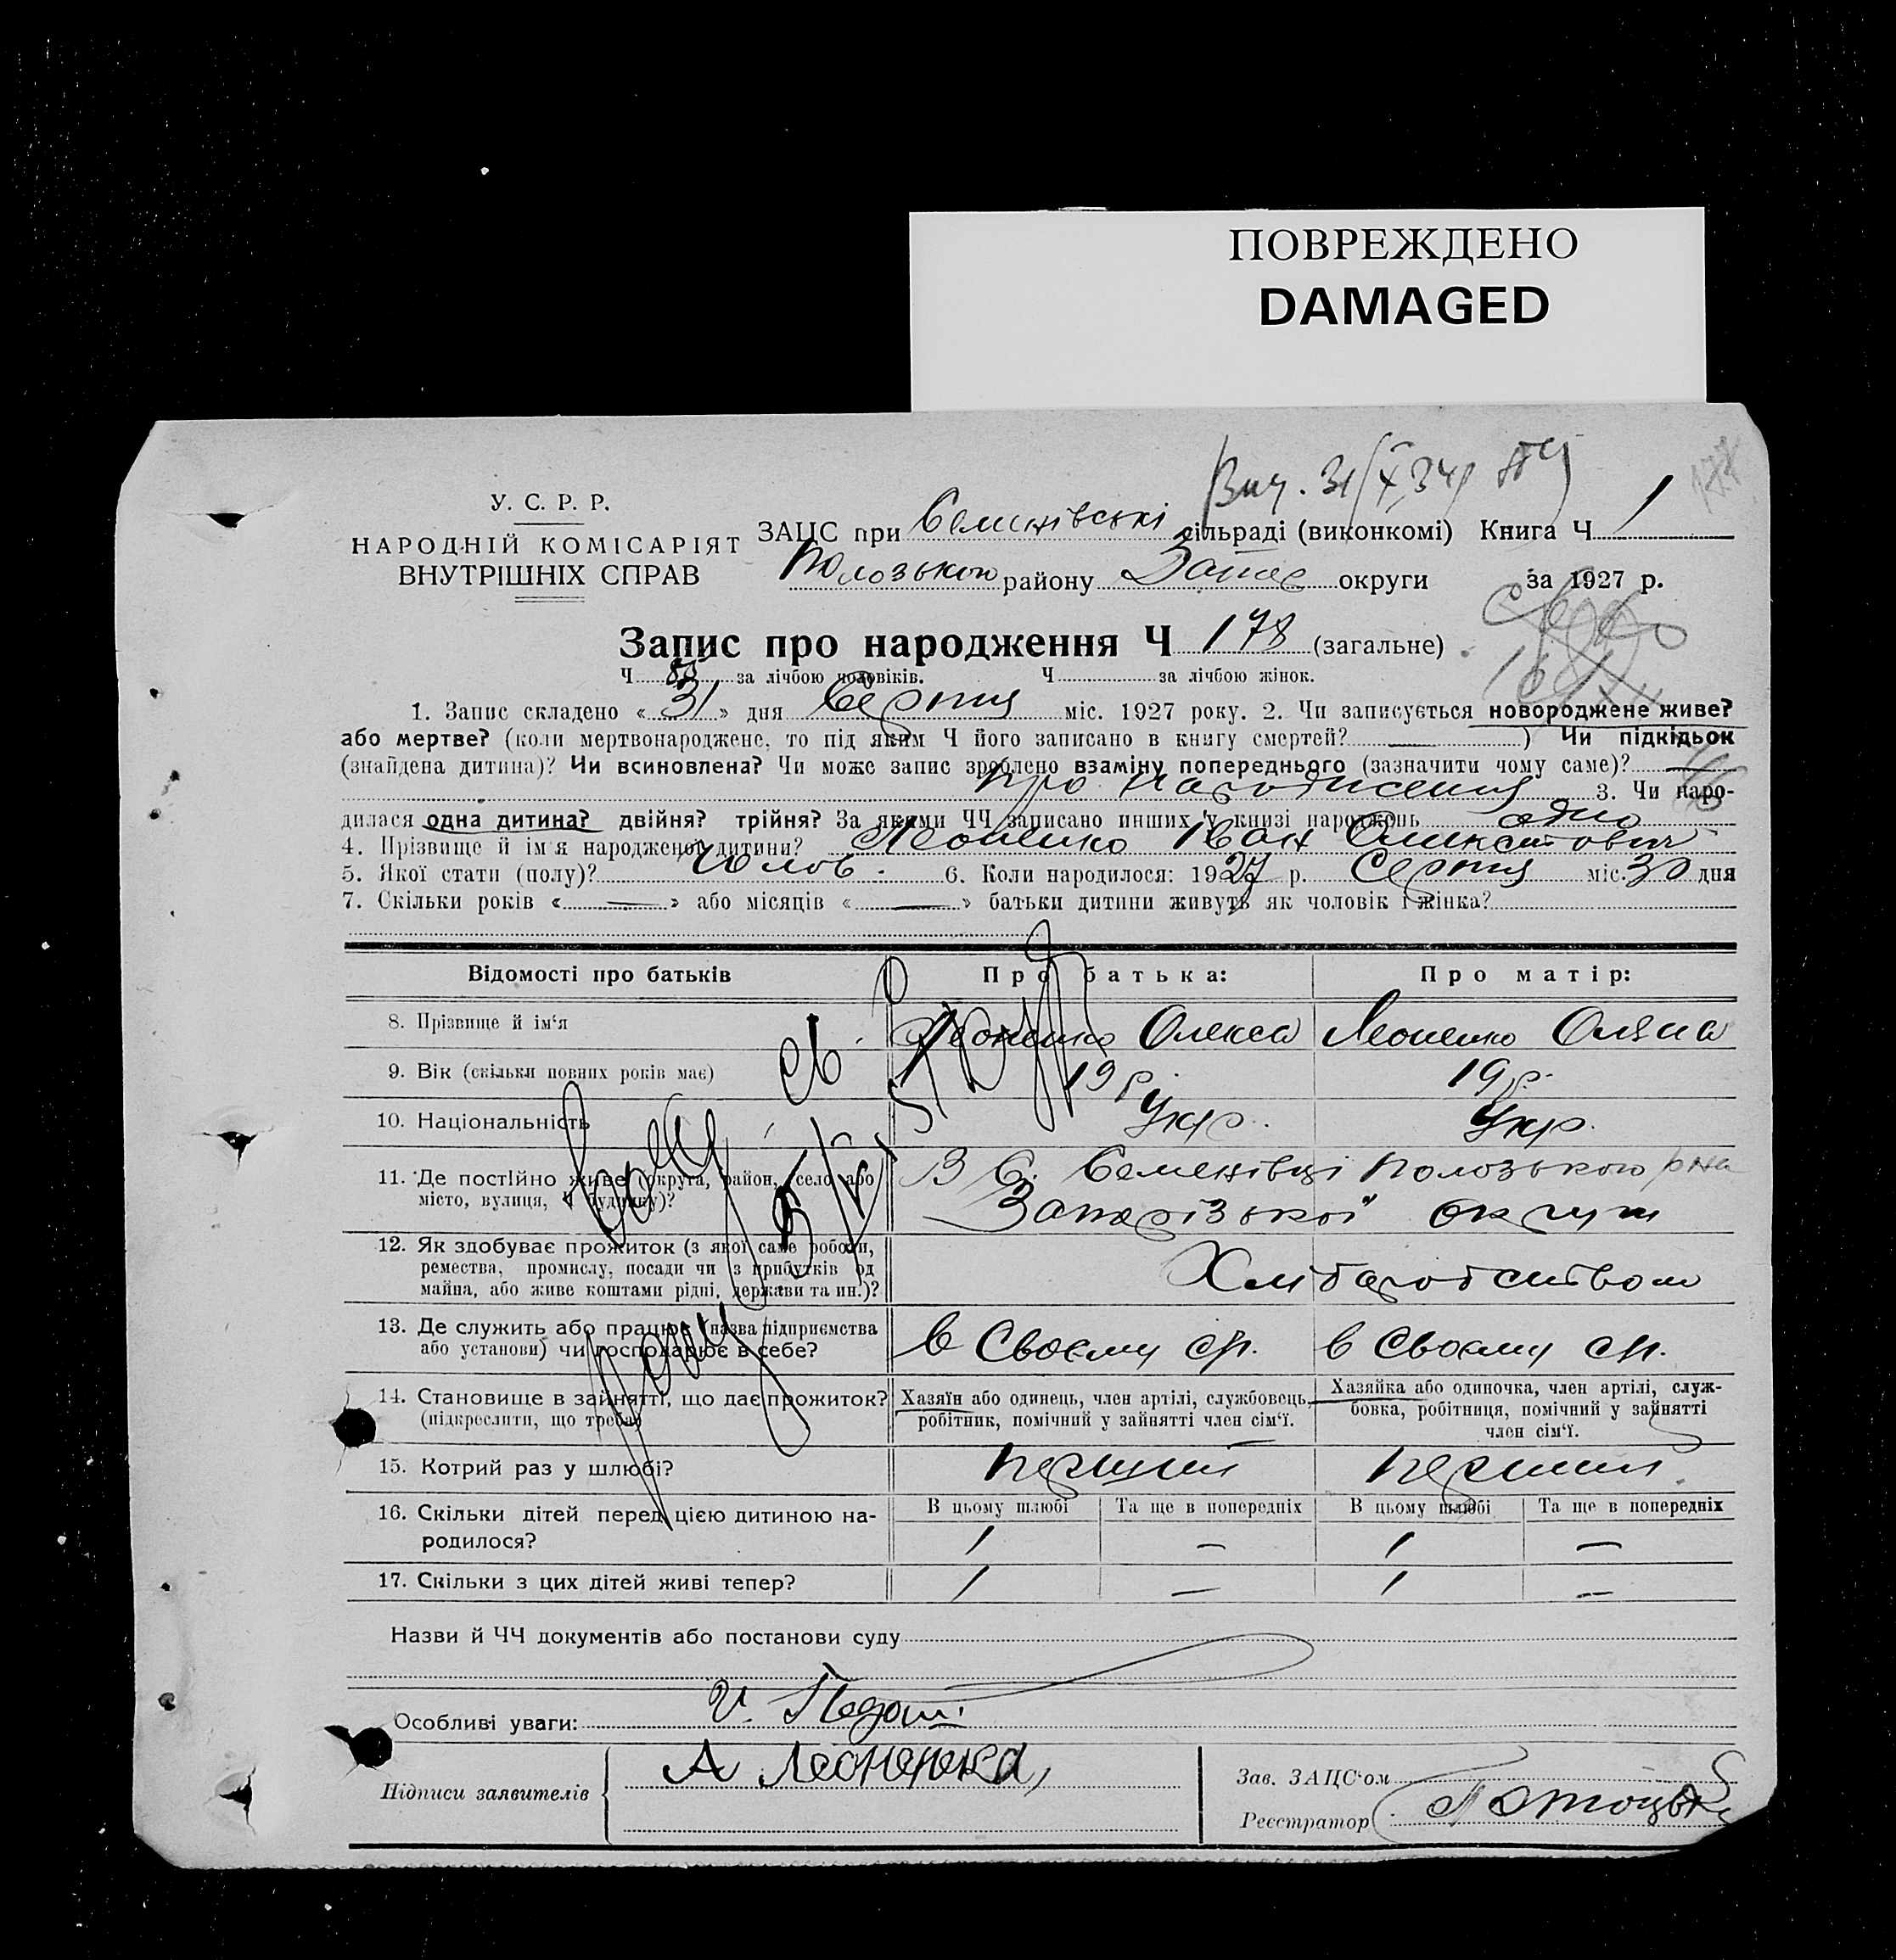 ПОВРЕЖДЕНО
DAMAGED
У. С. Р. Р.
НАРОДНІЙ КОМІСАРІЯТ
ВНУТРІШНІХ СПРАВ
ЗАЦС при Семенівські сільраді (виконкомі) Книга Ч 1
Полозького району Запор округи за 1927 р.
Запис про народження Ч 178 (загальне)
Ч за лічбою чоловіків. Ч за лічбою жінок.
1. Запис складено « 31 » дня Серпня міс. 1927 року. 2. Чи записується новороджене живе?
або мертве? (коли мертвонароджене, то під яким Ч його записано в книгу смертей? — ) Чи підкідьок
(знайдена дитина)? Чи всиновлена? Чи може запис зроблено взаміну попереднього (зазначити чому саме)? —
про народження 3. Чи наро-
дилася одна дитина? двійня? трійня? За якими ЧЧ записано инших у книзі народжень одно
4. Прізвище й ім'я народженої дитини? Леоненко Іван
5. Якої стати (полу)? Чолов. 6. Коли народилося: 1927 р. Серпня міс. 30 дня
7. Скільки років « — » або місяців « — » батьки дитини живуть як чоловік і жінка?
Відомості про батьків Про батька: Про матір:
8. Прізвище й ім'я Леоненко Олекса Леоненко Оляна
9. Вік (скільки повних років має) 19 р. 19 р.
10. Національність Укр. Укр.
11. Де постійно живе (округа, район, село або В С. Семенівці Полозького р-на
місто, вулиця, Ч будинку)? Запорізької округи
12. Як здобуває прожиток (з якої саме роботи,
ремества, промислу, посади чи з прибутків од Хліборобством
майна, або живе коштами рідні, держави та ин.)?
13. Де служить або працює (назва підприємства
або установи) чи господарює в себе? в Своєму в Своєму
14. Становище в зайнятті, що дає прожиток?
(підкреслити, що треба)
Хазяїн або одинець, член артілі, службовець,
робітник, помічний у зайнятті член сім'ї.
Хазяйка або одиночка, член артілі, служ-
бовка, робітниця, помічний у зайнятті
член сім'ї.
15. Котрий раз у шлюбі? перший перший
16. Скільки дітей перед цією дитиною на-
родилося?
В цьому шлюбі Та ще в попередніх В цьому шлюбі Та ще в попередніх
1 — 1 —
17. Скільки з цих дітей живі тепер? 1 — 1 —
Назви й ЧЧ документів або постанови суду
Особливі уваги:
Підписи заявителів А Леоненка
Зав. ЗАЦС'ом
Реєстратор